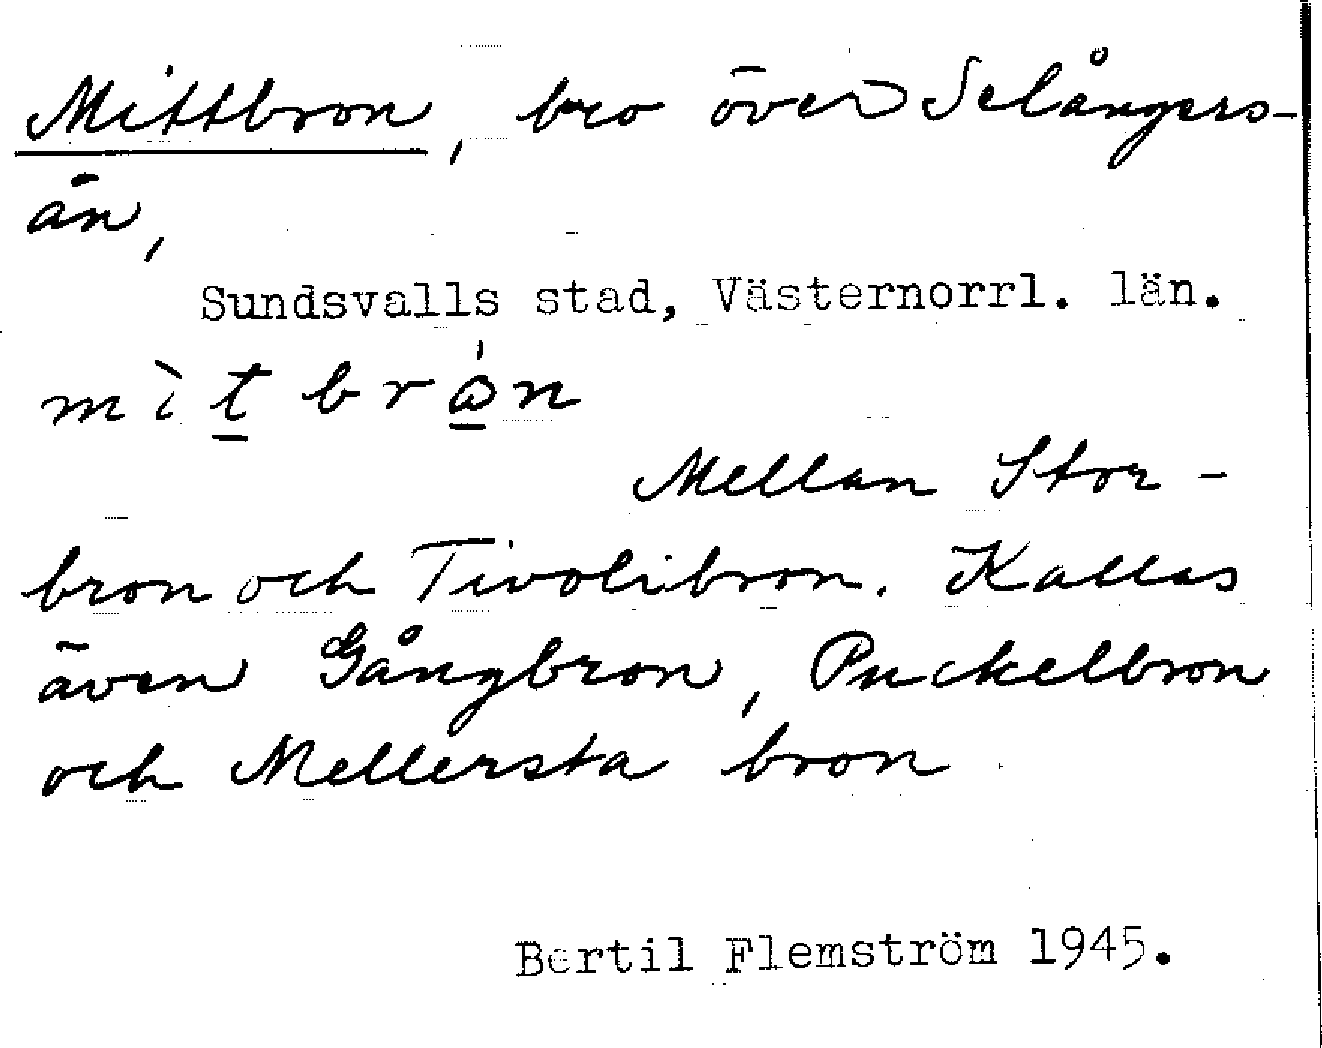 Mittbron, bro över Selångers-
ån,
Sundsvalls stad, Västernorrl. län.
mìt brώn
Mellan Stor-
bron och Tivolibron. Kallas
även Gångbron, Puckelbron
och Mellersta bron
Bertil Flemström 1945.